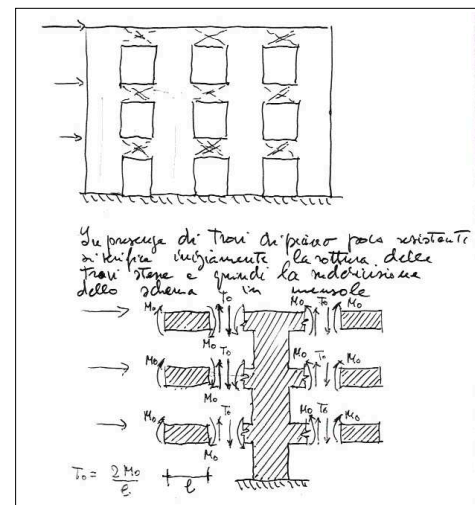 In presenza di travi di piano poco resistenti
si verifica inizialmente la rottura delle
travi stesse e quindi la suddivisione
dello schema in mensole
M₀ T₀ M₀ T₀ M₀
M₀ M₀
M₀ T₀ M₀ T₀ M₀
M₀
M₀ T₀ M₀ T₀ M₀
M₀
T₀ = 2 M₀ / l
l